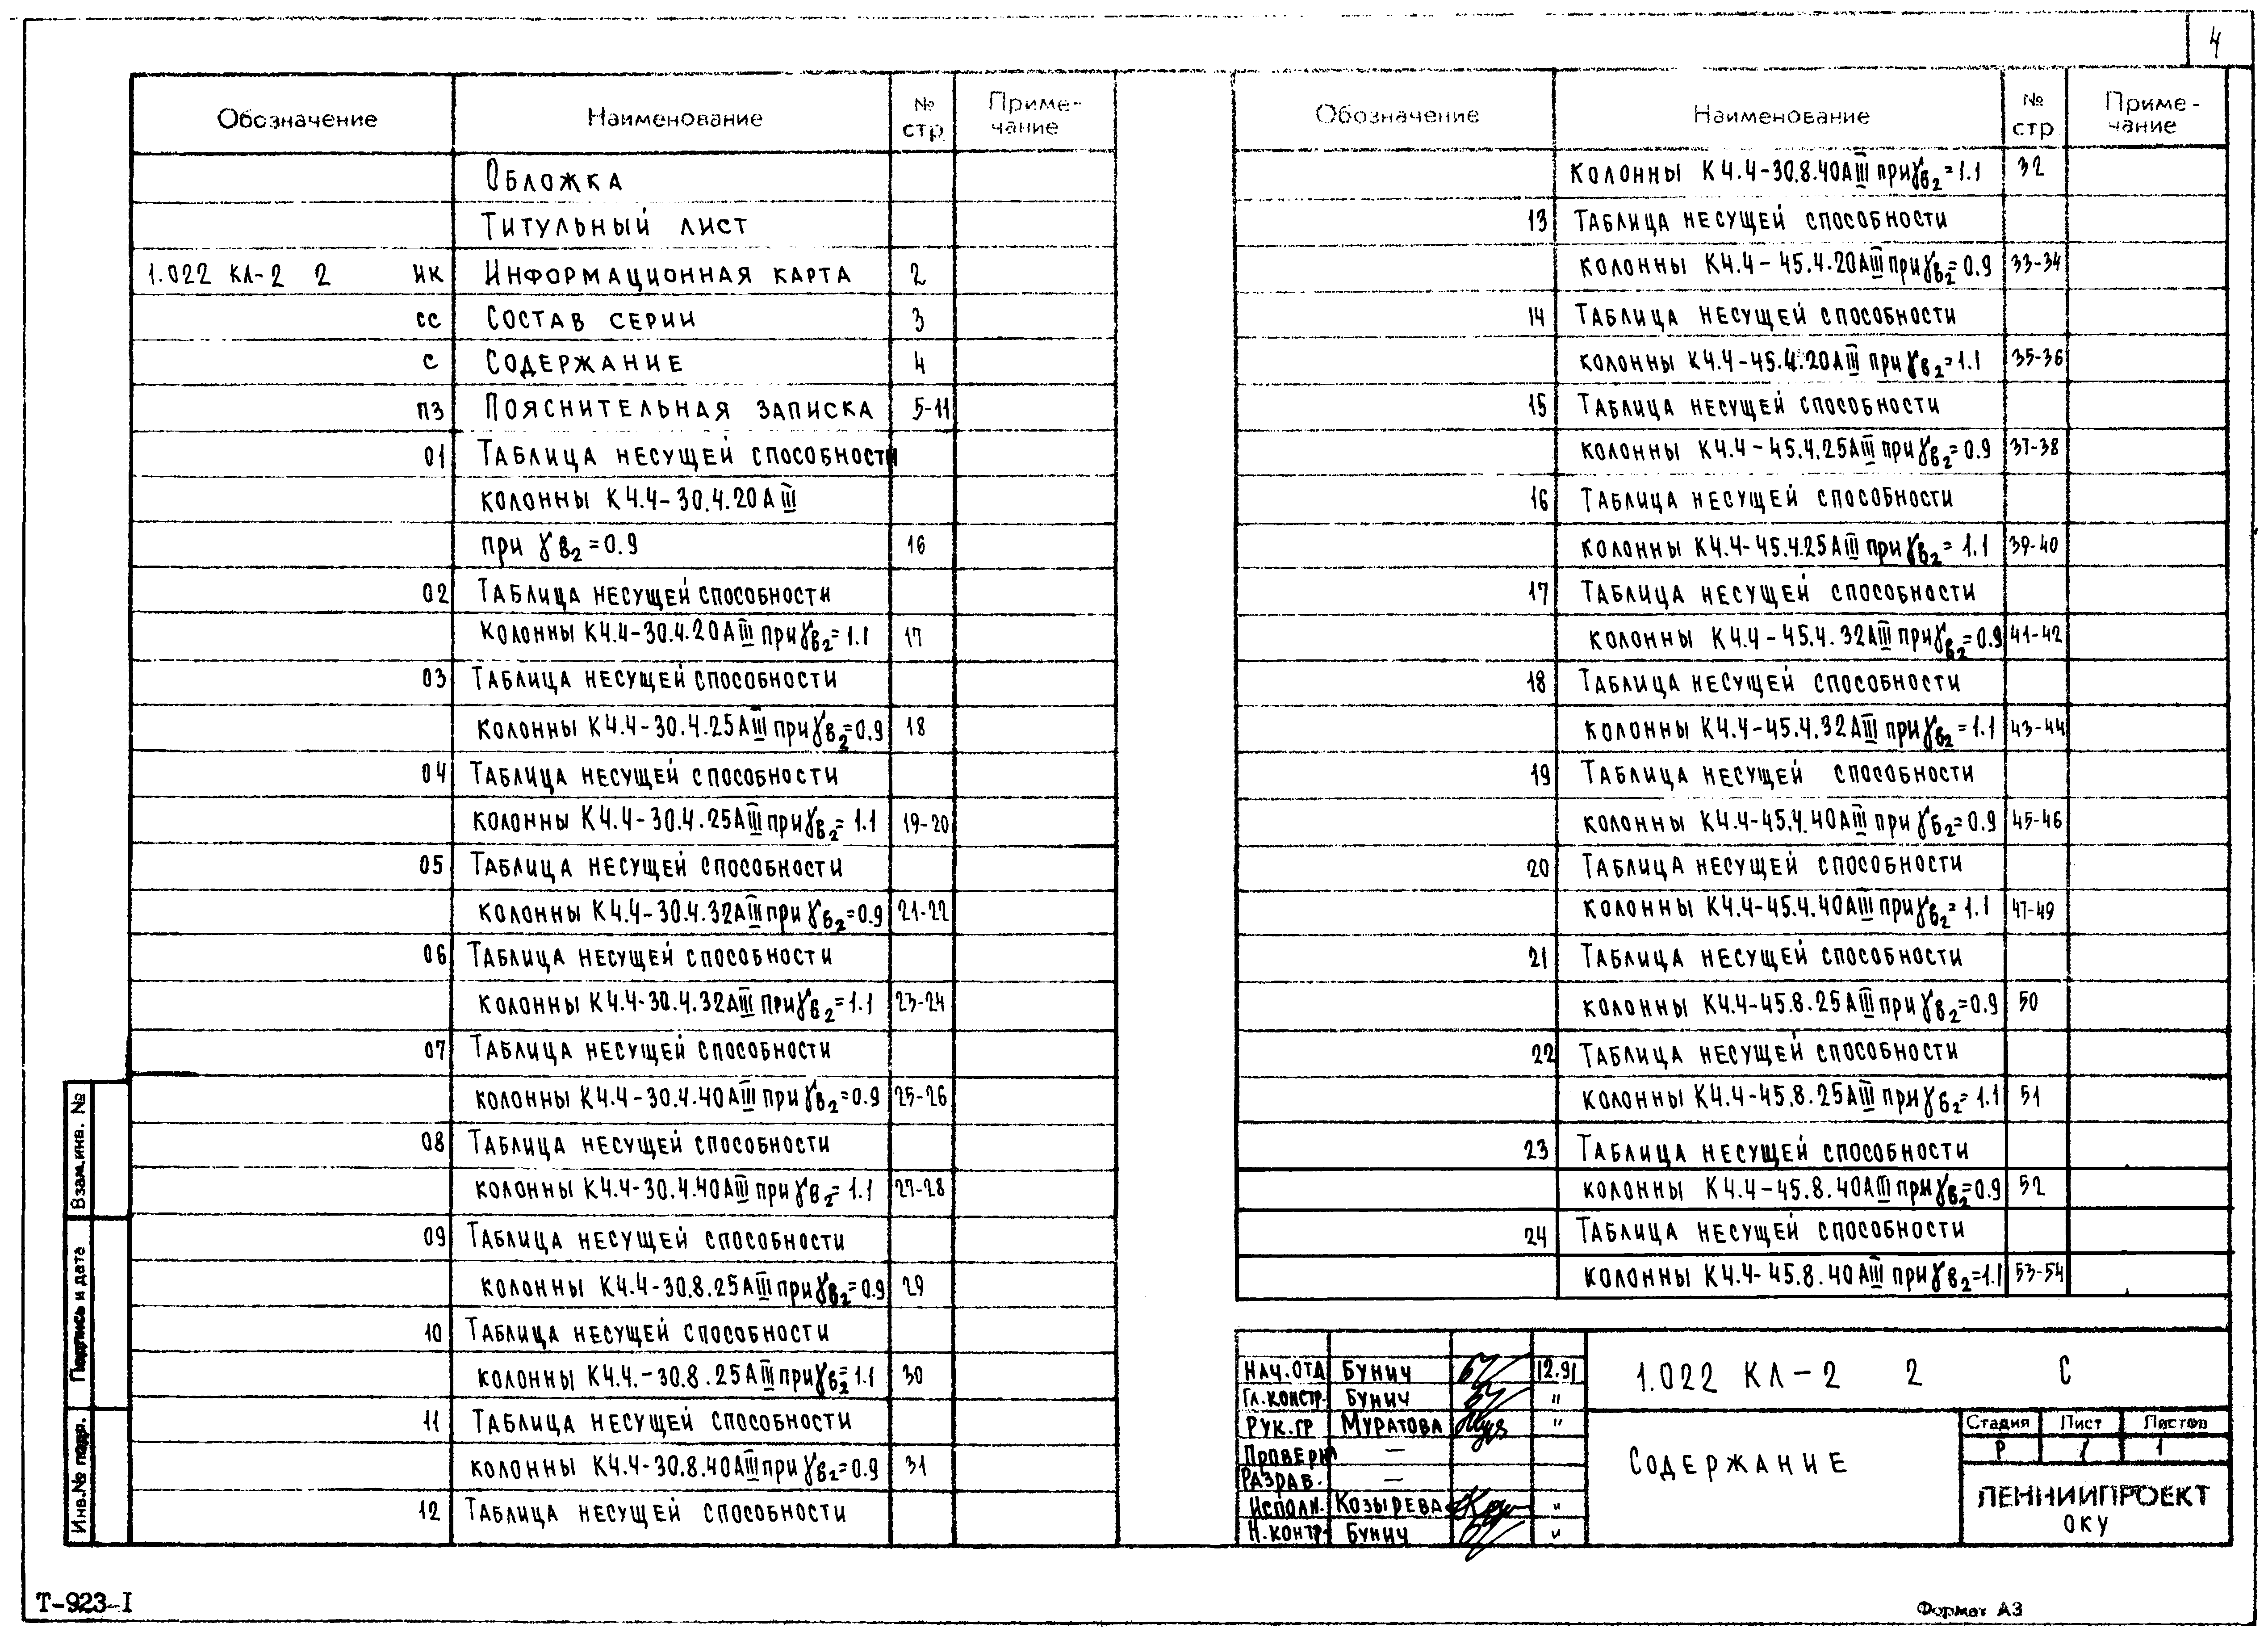 4
Обозначение Наименование № стр. Приме-чание
Обложка
Титульный лист
1.022 КЛ-2 2 ИК Информационная карта 2
СС Состав серии 3
С Содержание 4
ПЗ Пояснительная записка 5-11
01 Таблица несущей способности
колонны К4.4-30.4.20АIII
при γв2=0.9 16
02 Таблица несущей способности
колонны К4.4-30.4.20АIII при γв2=1.1 17
03 Таблица несущей способности
колонны К4.4-30.4.25АIII при γв2=0.9 18
04 Таблица несущей способности
колонны К4.4-30.4.25АIII при γв2=1.1 19-20
05 Таблица несущей способности
колонны К4.4-30.4.32АIII при γв2=0.9 21-22
06 Таблица несущей способности
колонны К4.4-30.4.32АIII при γв2=1.1 23-24
07 Таблица несущей способности
колонны К4.4-30.4.40АIII при γв2=0.9 25-26
08 Таблица несущей способности
колонны К4.4-30.4.40АIII при γв2=1.1 27-28
09 Таблица несущей способности
колонны К4.4-30.8.25АIII при γв2=0.9 29
10 Таблица несущей способности
колонны К4.4.-30.8.25АIII при γв2=1.1 30
11 Таблица несущей способности
колонны К4.4-30.8.40АIII при γв2=0.9 31
12 Таблица несущей способности
Обозначение Наименование № стр Приме-чание
колонны К4.4-30.8.40АIII при γв2=1.1 32
13 Таблица несущей способности
колонны К4.4-45.4.20АIII при γв2=0.9 33-34
14 Таблица несущей способности
колонны К4.4-45.4.20АIII при γв2=1.1 35-36
15 Таблица несущей способности
колонны К4.4-45.4.25АIII при γв2=0.9 37-38
16 Таблица несущей способности
колонны К4.4-45.4.25АIII при γв2=1.1 39-40
17 Таблица несущей способности
колонны К4.4-45.4.32АIII при γв2=0.9 41-42
18 Таблица несущей способности
колонны К4.4-45.4.32АIII при γв2=1.1 43-44
19 Таблица несущей способности
колонны К4.4-45.4.40АIII при γв2=0.9 45-46
20 Таблица несущей способности
колонны К4.4-45.4.40АIII при γв2=1.1 47-49
21 Таблица несущей способности
колонны К4.4-45.8.25АIII при γв2=0.9 50
22 Таблица несущей способности
колонны К4.4-45.8.25АIII при γв2=1.1 51
23 Таблица несущей способности
колонны К4.4-45.8.40АIII при γв2=0.9 52
24 Таблица несущей способности
колонны К4.4-45.8.40АIII при γв2=1.1 53-54
Нач.отд Бунич 12.91
Гл.констр. Бунич "
Рук.гр Муратова "
Проверил —
Разраб. —
Исполн. Козырева "
Н.контр. Бунич "
1.022 КЛ-2 2 С
Содержание
Стадия Лист Листов
Р 1 1
ЛЕННИИПРОЕКТ
ОКУ
Взам.инв. №
Подпись и дата
Инв.№ подл.
Т-923-I
Формат А3